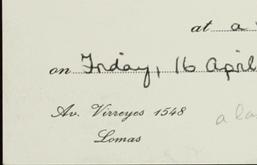 at a
on Friday, 16 April
Av. Virreyes 1548
a la
Lomas